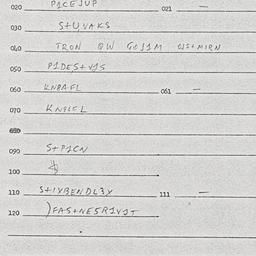 020 P1CEJUP 021 —
030 S+U,VAKS
040 TRON QW GOJ1M WS+MIRN
050 P1DES+V1S
060 KNBAFL 061 —
070 KNBLEL
080
090 S+P1CN
100
110 S+IXBENDL3X 111 —
120 )FAS+NE5R1V1T